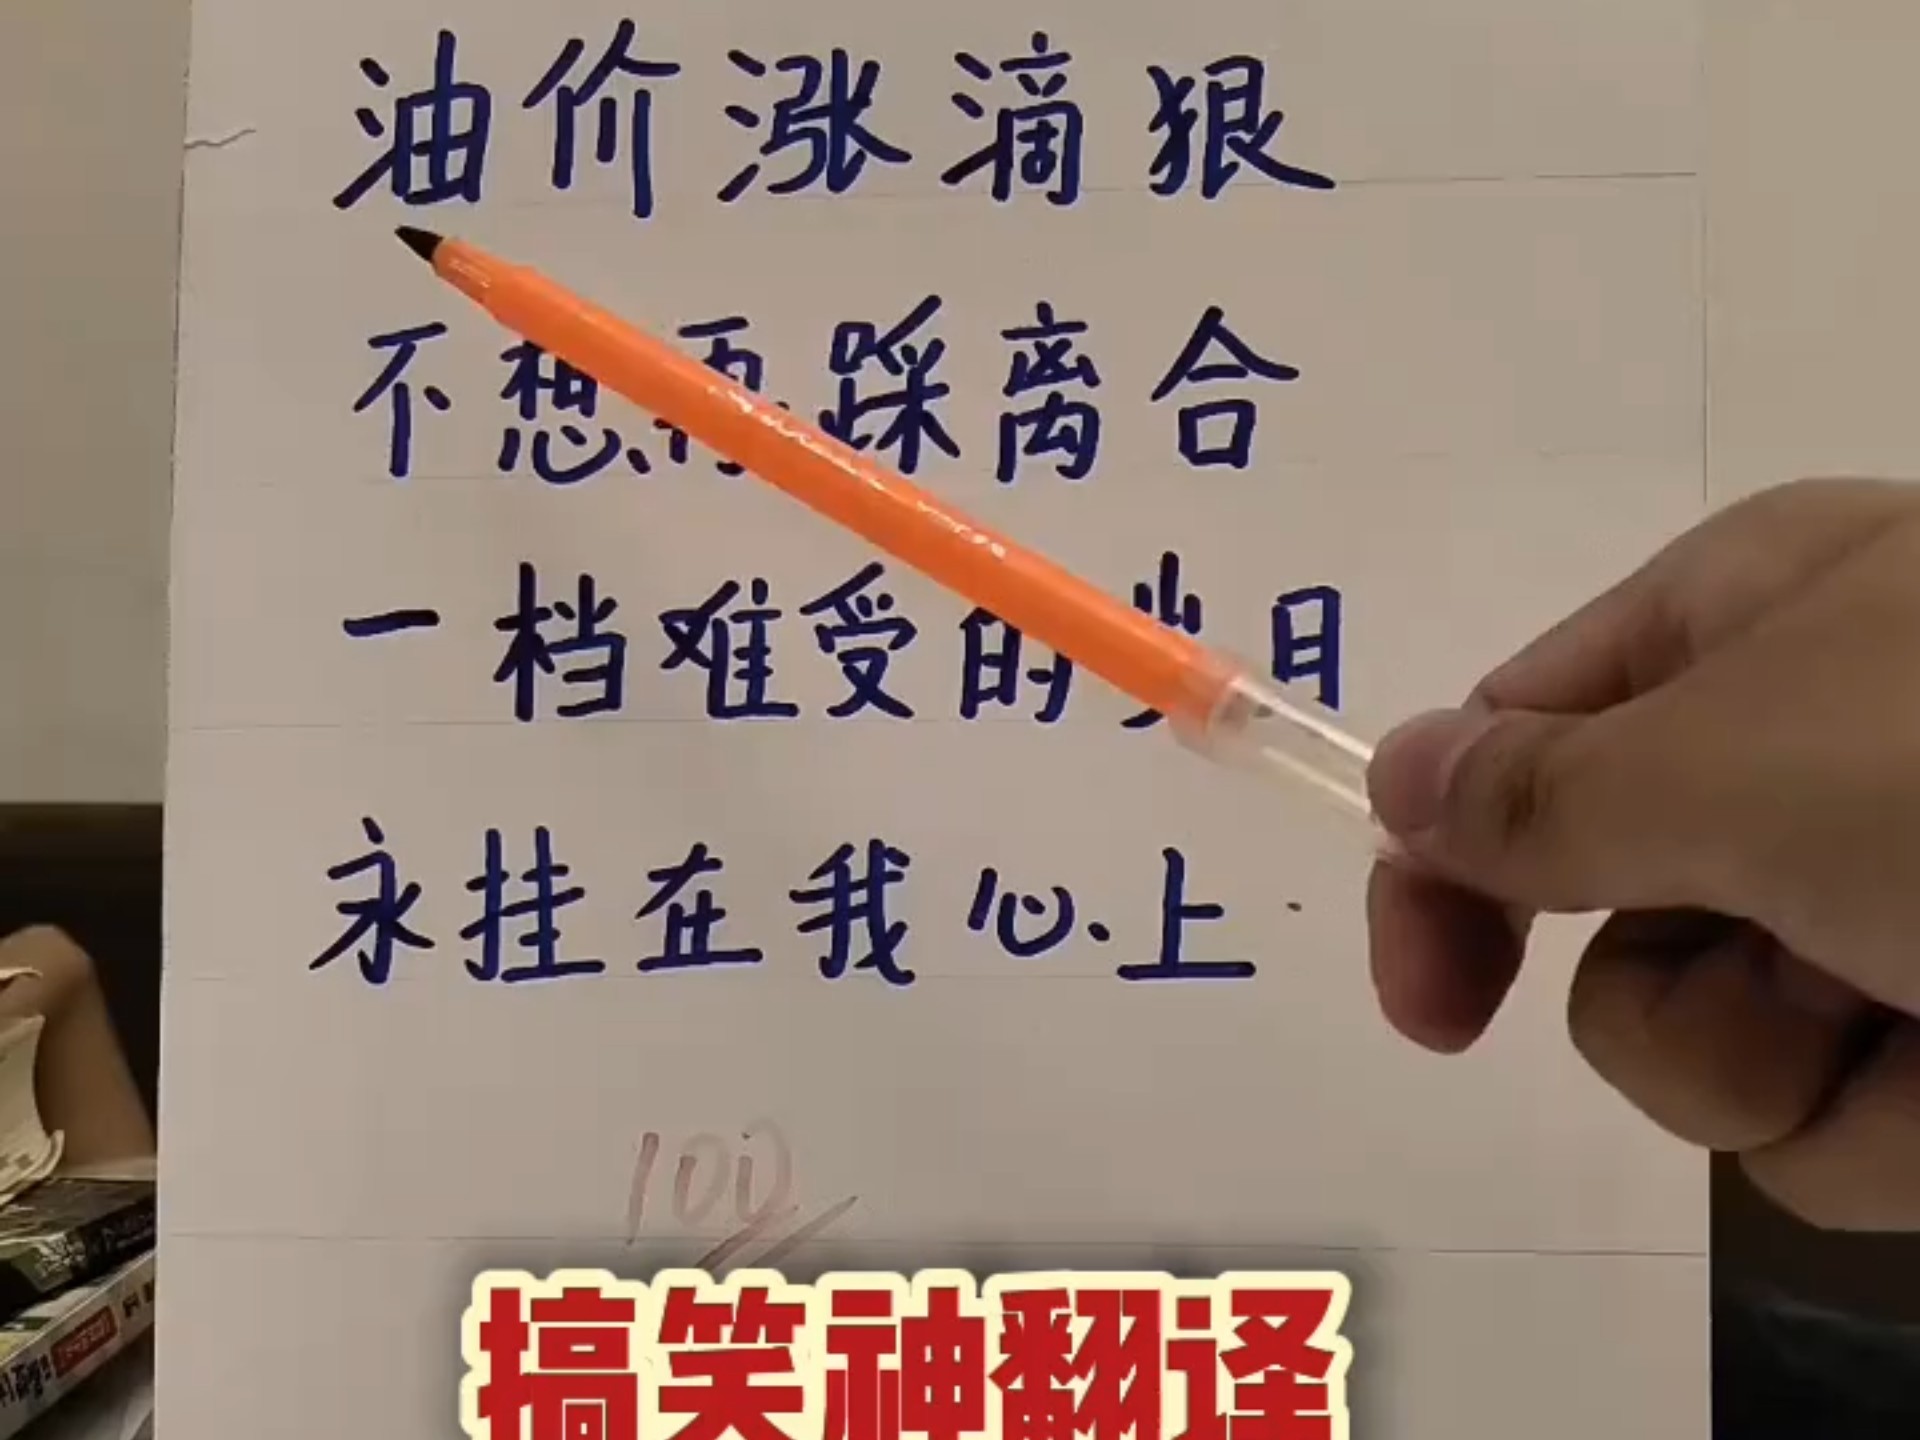 油价涨滴狠
不想再踩离合
一档难受的当日
永挂在我心上
100
搞笑神翻译